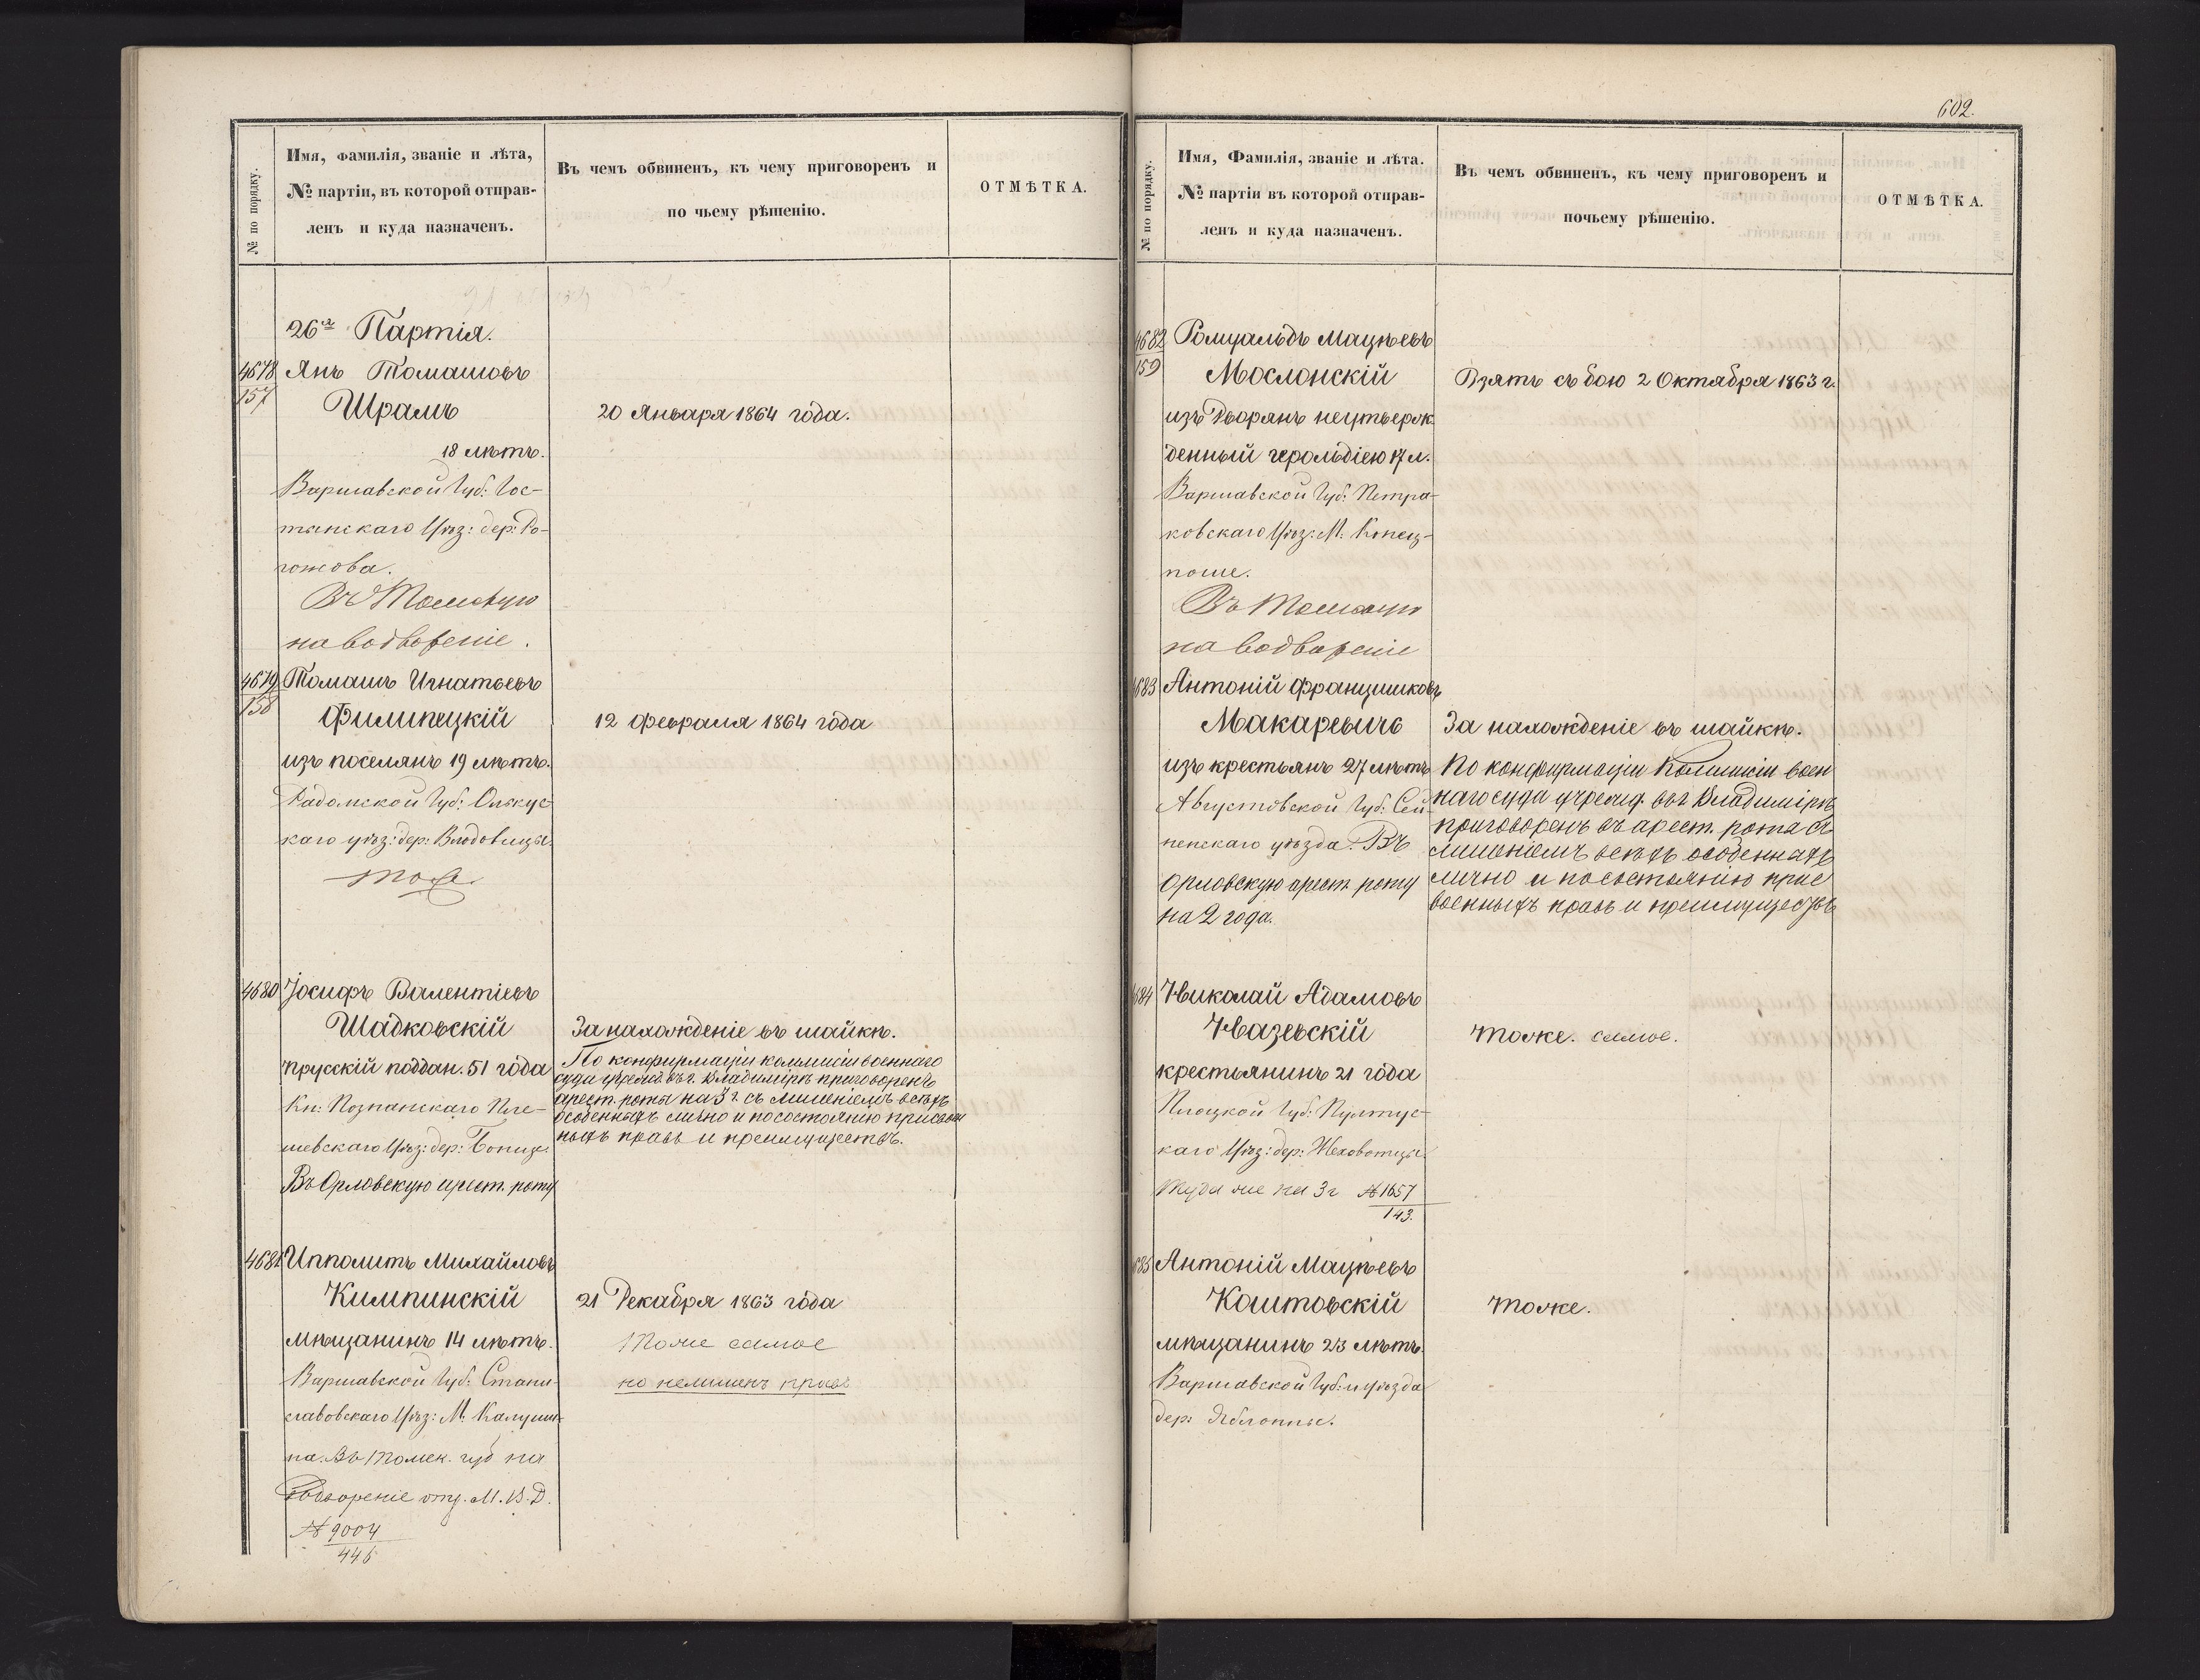 602.
№ по порядку.
Имя, фамилія, званіе и лѣта,
№ партіи, въ которой отправ-
ленъ и куда назначенъ.
Въ чемъ обвиненъ, къ чему приговоренъ и
по чьему рѣшенію.
ОТМѢТКА.
26я Партія.
4678
157
Янъ Томашовъ
Шрамъ
20 Января 1864 года.
18 лѣтъ.
Варшавской Губ: Гос-
тынскаго Уѣз: дер: Ро-
гожова.
Въ Томскую
на водвореніе.
4679
158
Томашъ Игнатьевъ
Филипецкій
12 февраля 1864 года
изъ поселянъ 19 лѣтъ.
Радомской Губ: Олькус-
каго уѣз: дер: Влодовицы.
тоже
4680
Іосифъ Валентіевъ
Шадковскій
За нахожденіе въ шайкѣ.
прусскій поддан. 51 года
По конфирмаціи коммисіи военнаго
суда учрежд. въ г. Владимірѣ приговоренъ
арест. роты на 3 г. съ лишеніемъ всѣхъ
особенныхъ лично и по состоянію присвоен
ныхъ правъ и преимуществъ.
Кн: Познанскаго Пле-
шевскаго Уѣз: дер:
Въ Орловскую арест. роту
4681
Ипполитъ Михайловъ
Кимпинскій
21 Декабря 1863 года
мѣщанинъ 14 лѣтъ.
Тоже самое
Варшавской Губ: Стани-
но нелишенъ правъ
славовскаго Уѣз: М. Калуши-
на. Въ Томск. губ на
водвореніе отр. М. В. Д.
№ 9004
446
№ по порядку.
Имя, Фамилія, званіе и лѣта.
№ партіи въ которой отправ-
ленъ и куда назначенъ.
Въ чемъ обвиненъ, къ чему приговоренъ и
почьему рѣшенію.
ОТМѢТКА.
4682
159
Ромуальдъ Мацѣевъ
Мослонскій
Взятъ съ бою 2 Октября 1863 г.
изъ Дворянъ неутверж-
денный герольдіею 17 л.
Варшавской Губ: Петра-
ковскаго Уѣз: М: Конец-
поше.
Въ Томскую
на водвореніе
4683
Антоній Францишковъ
Макаревичъ
За нахожденіе въ шайкѣ.
изъ крестьянъ 27 лѣтъ
По конфирмаціи Коммисіи воен
наго суда учрежд. въ г Владимірѣ
Августовской Губ: Сей-
приговоренъ въ арест. роты съ
ненскаго уѣзда. Въ
лишеніемъ всѣхъ особенныхъ
Орловскую арест. роту
лично и посостоянію прис
военныхъ правъ и преимуществъ
на 2 года.
4684
Николай Адамовъ
Назевскій
тоже. самое.
крестьянинъ 21 года
Плоцкой Губ: Пултус-
каго Уѣз: дер:
Туда же на 3 г № 1657
143.
4685
Антоній Мацѣевъ
Каштовскій
тоже.
мѣщанинъ 23 лѣтъ.
Варшавской Губ: и уѣзда
дер: Яблонны.